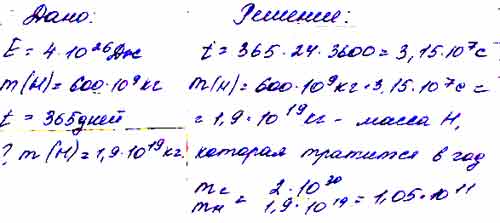 Дано:
E = 4·10²⁶Дж
m(H) = 600·10⁹кг
t = 365дней
? m(H) = 1,9·10¹⁹кг
Решение:
t = 365·24·3600 = 3,15·10⁷с
m(H) = 600·10⁹кг·3,15·10⁷с =
= 1,9·10¹⁹кг - масса H,
которая тратится в год
mc / mн = 2·10³⁰ / 1,9·10¹⁹ = 1,05·10¹¹